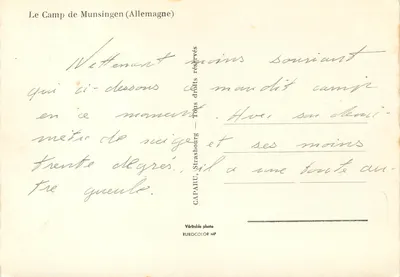 Le Camp de Munsingen (Allemagne)
Nettement moins souriant
qui ci-dessous ce maudit camp
en ce moment. Avec son demi-
mètre de neige et ses moins
trente degrés, il a une toute au-
tre gueule.
CAPARU, Strasbourg — Tous droits réservés
Véritable photo
EUROCOLOR